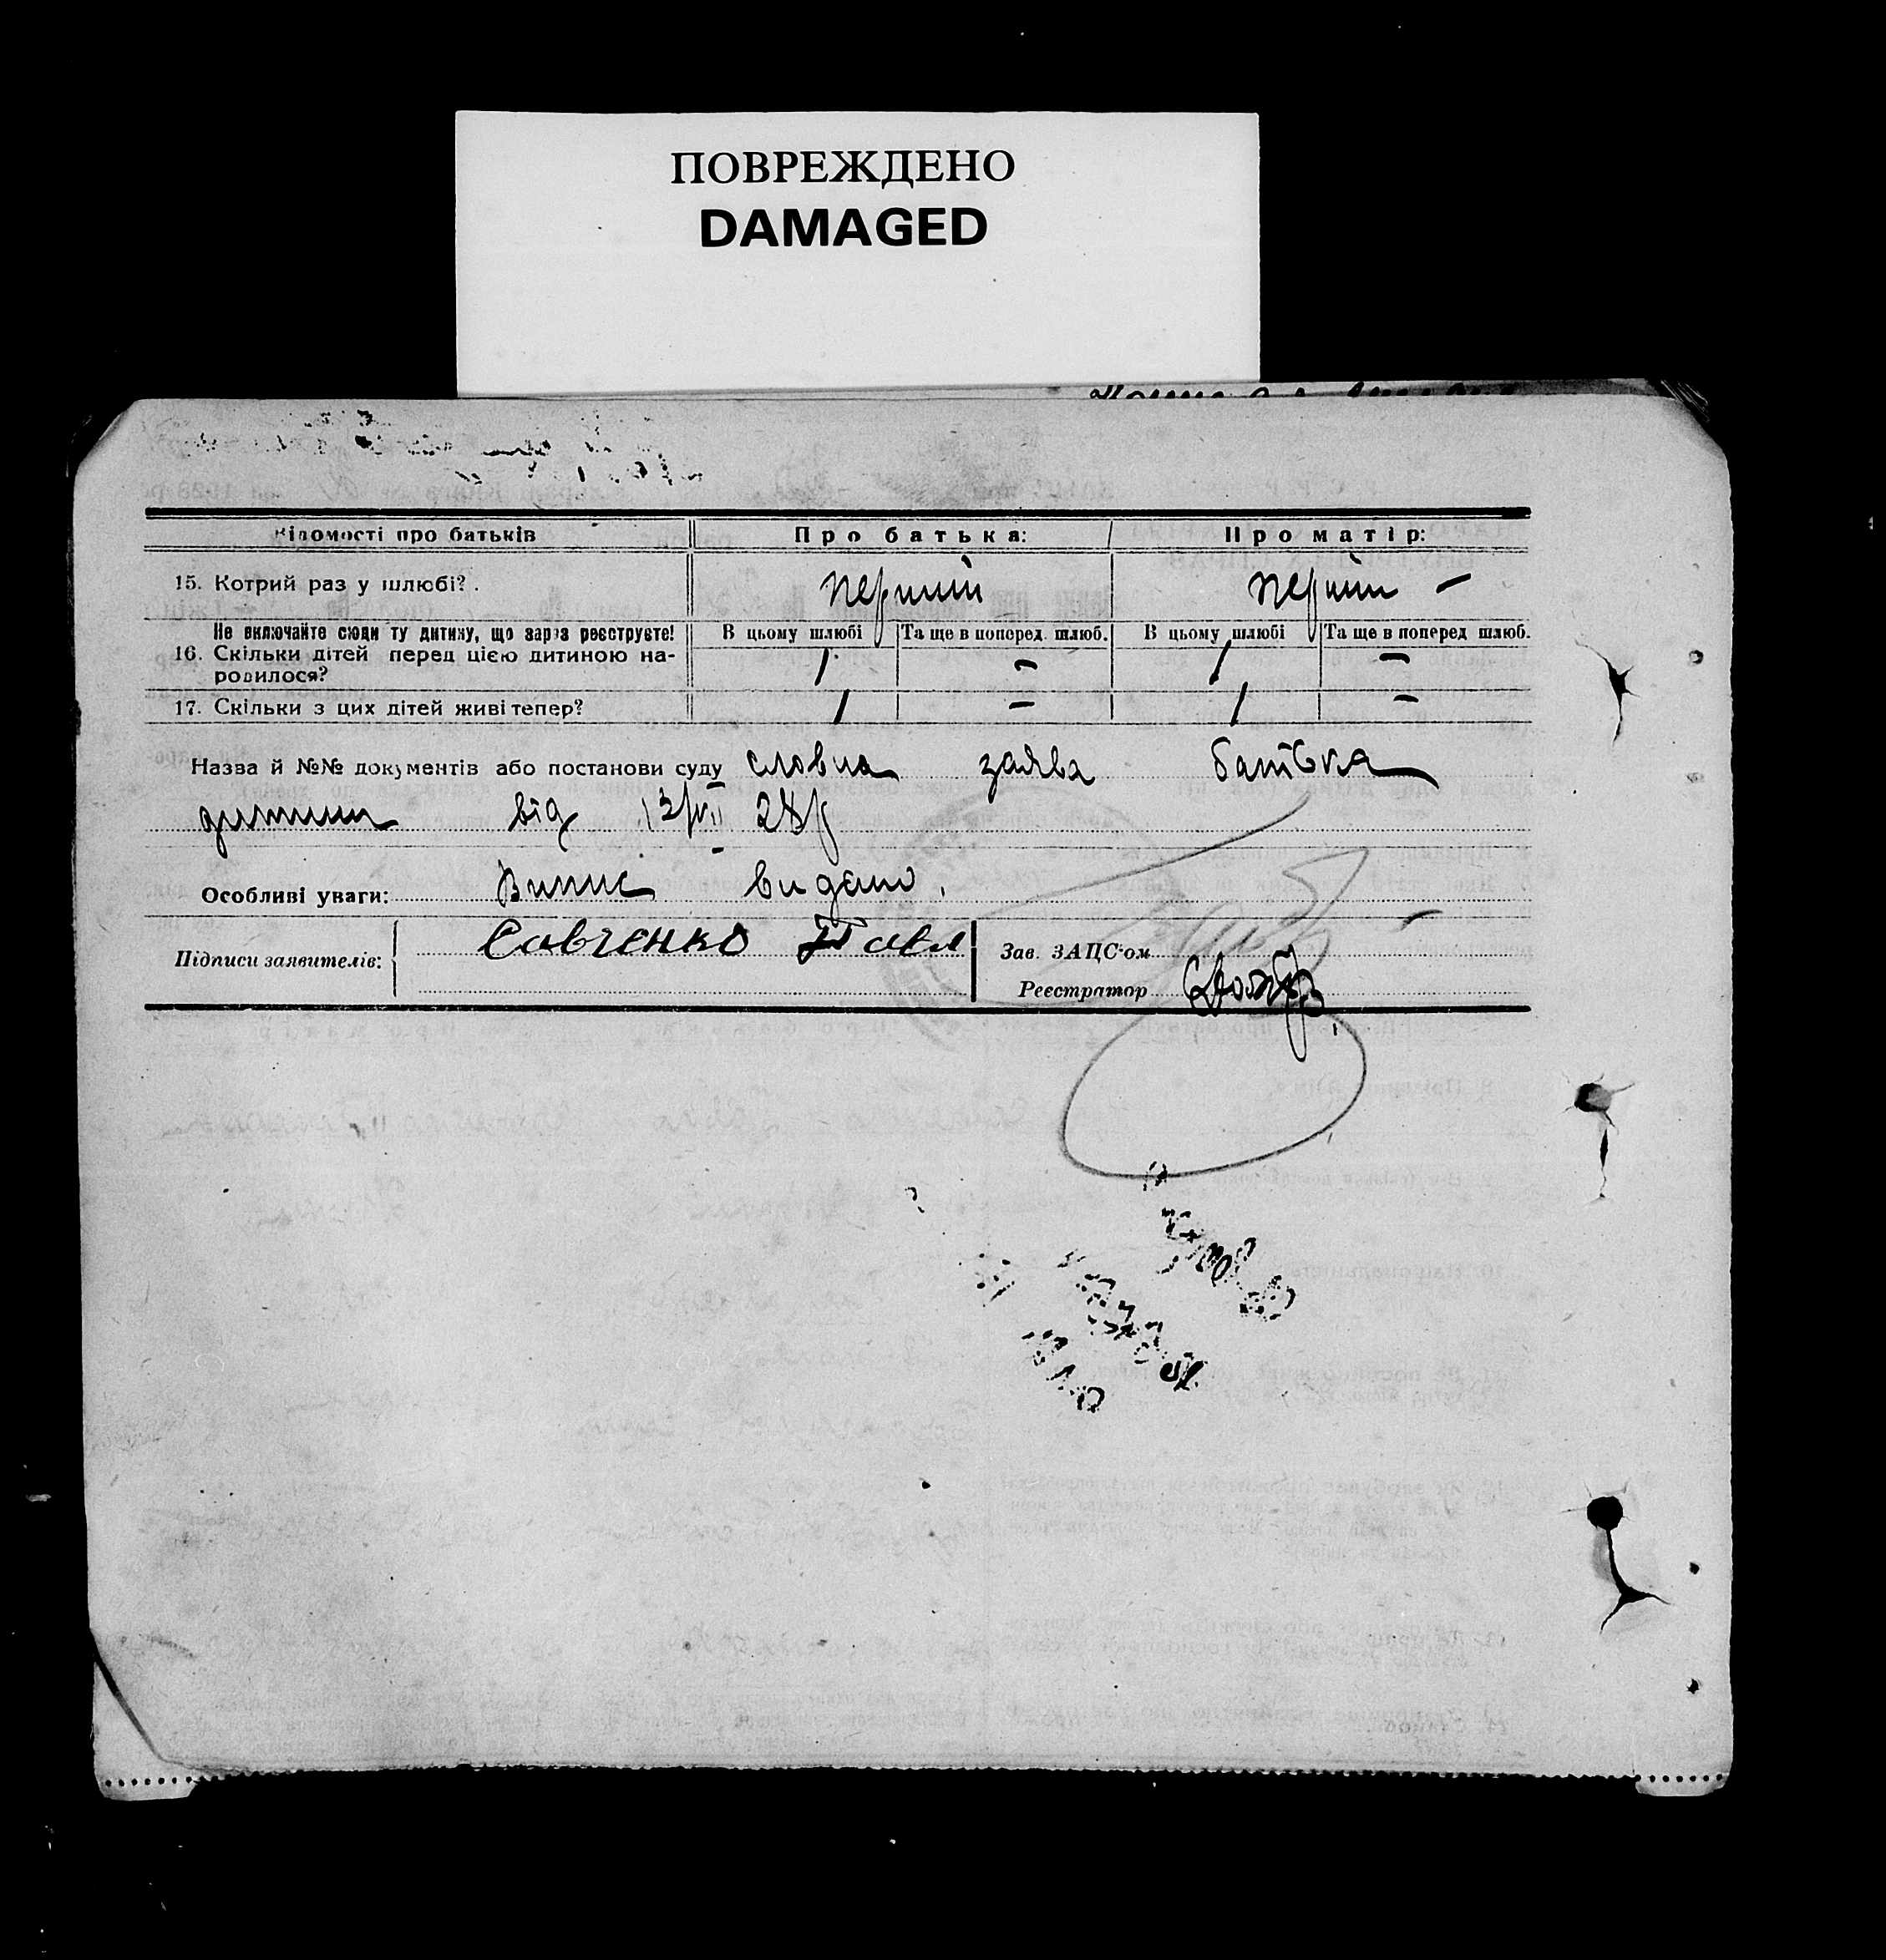 ПОВРЕЖДЕНО
DAMAGED
Відомості про батьків Про батька: Про матір:
15. Котрий раз у шлюбі? перший перший –
Не включайте сюди ту дитину, що зараз реєструєте! В цьому шлюбі Та ще в поперед. шлюб. В цьому шлюбі Та ще в поперед. шлюб.
16. Скільки дітей перед цією дитиною на- 1 – 1 –
родилося?
17. Скільки з цих дітей живі тепер? 1 – 1 –
Назва й №№ документів або постанови суду словна заява батька
дитини від 28р
Особливі уваги: Випис видано.
Підписи заявителів: Савченко Павл Зав. ЗАЦС'ом
Реєстратор